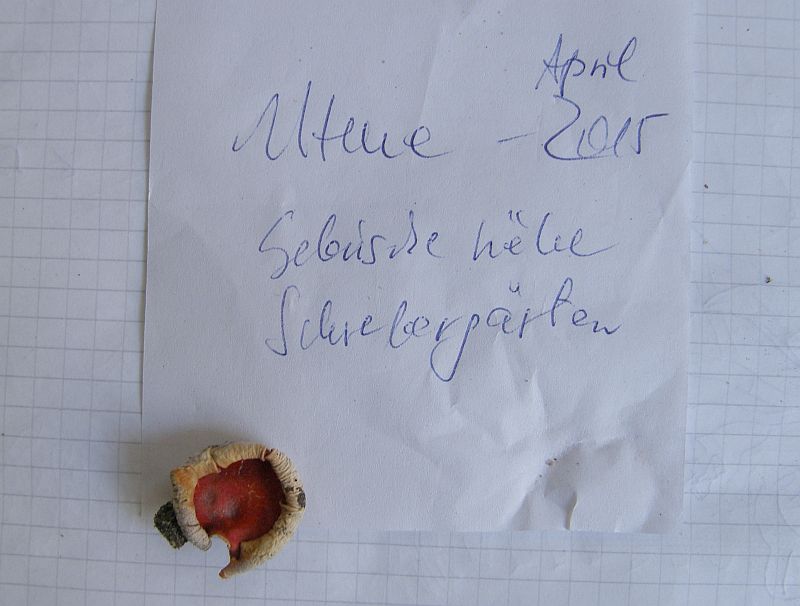 April
– 2015
Gebüsche nähe
Schrebergärten